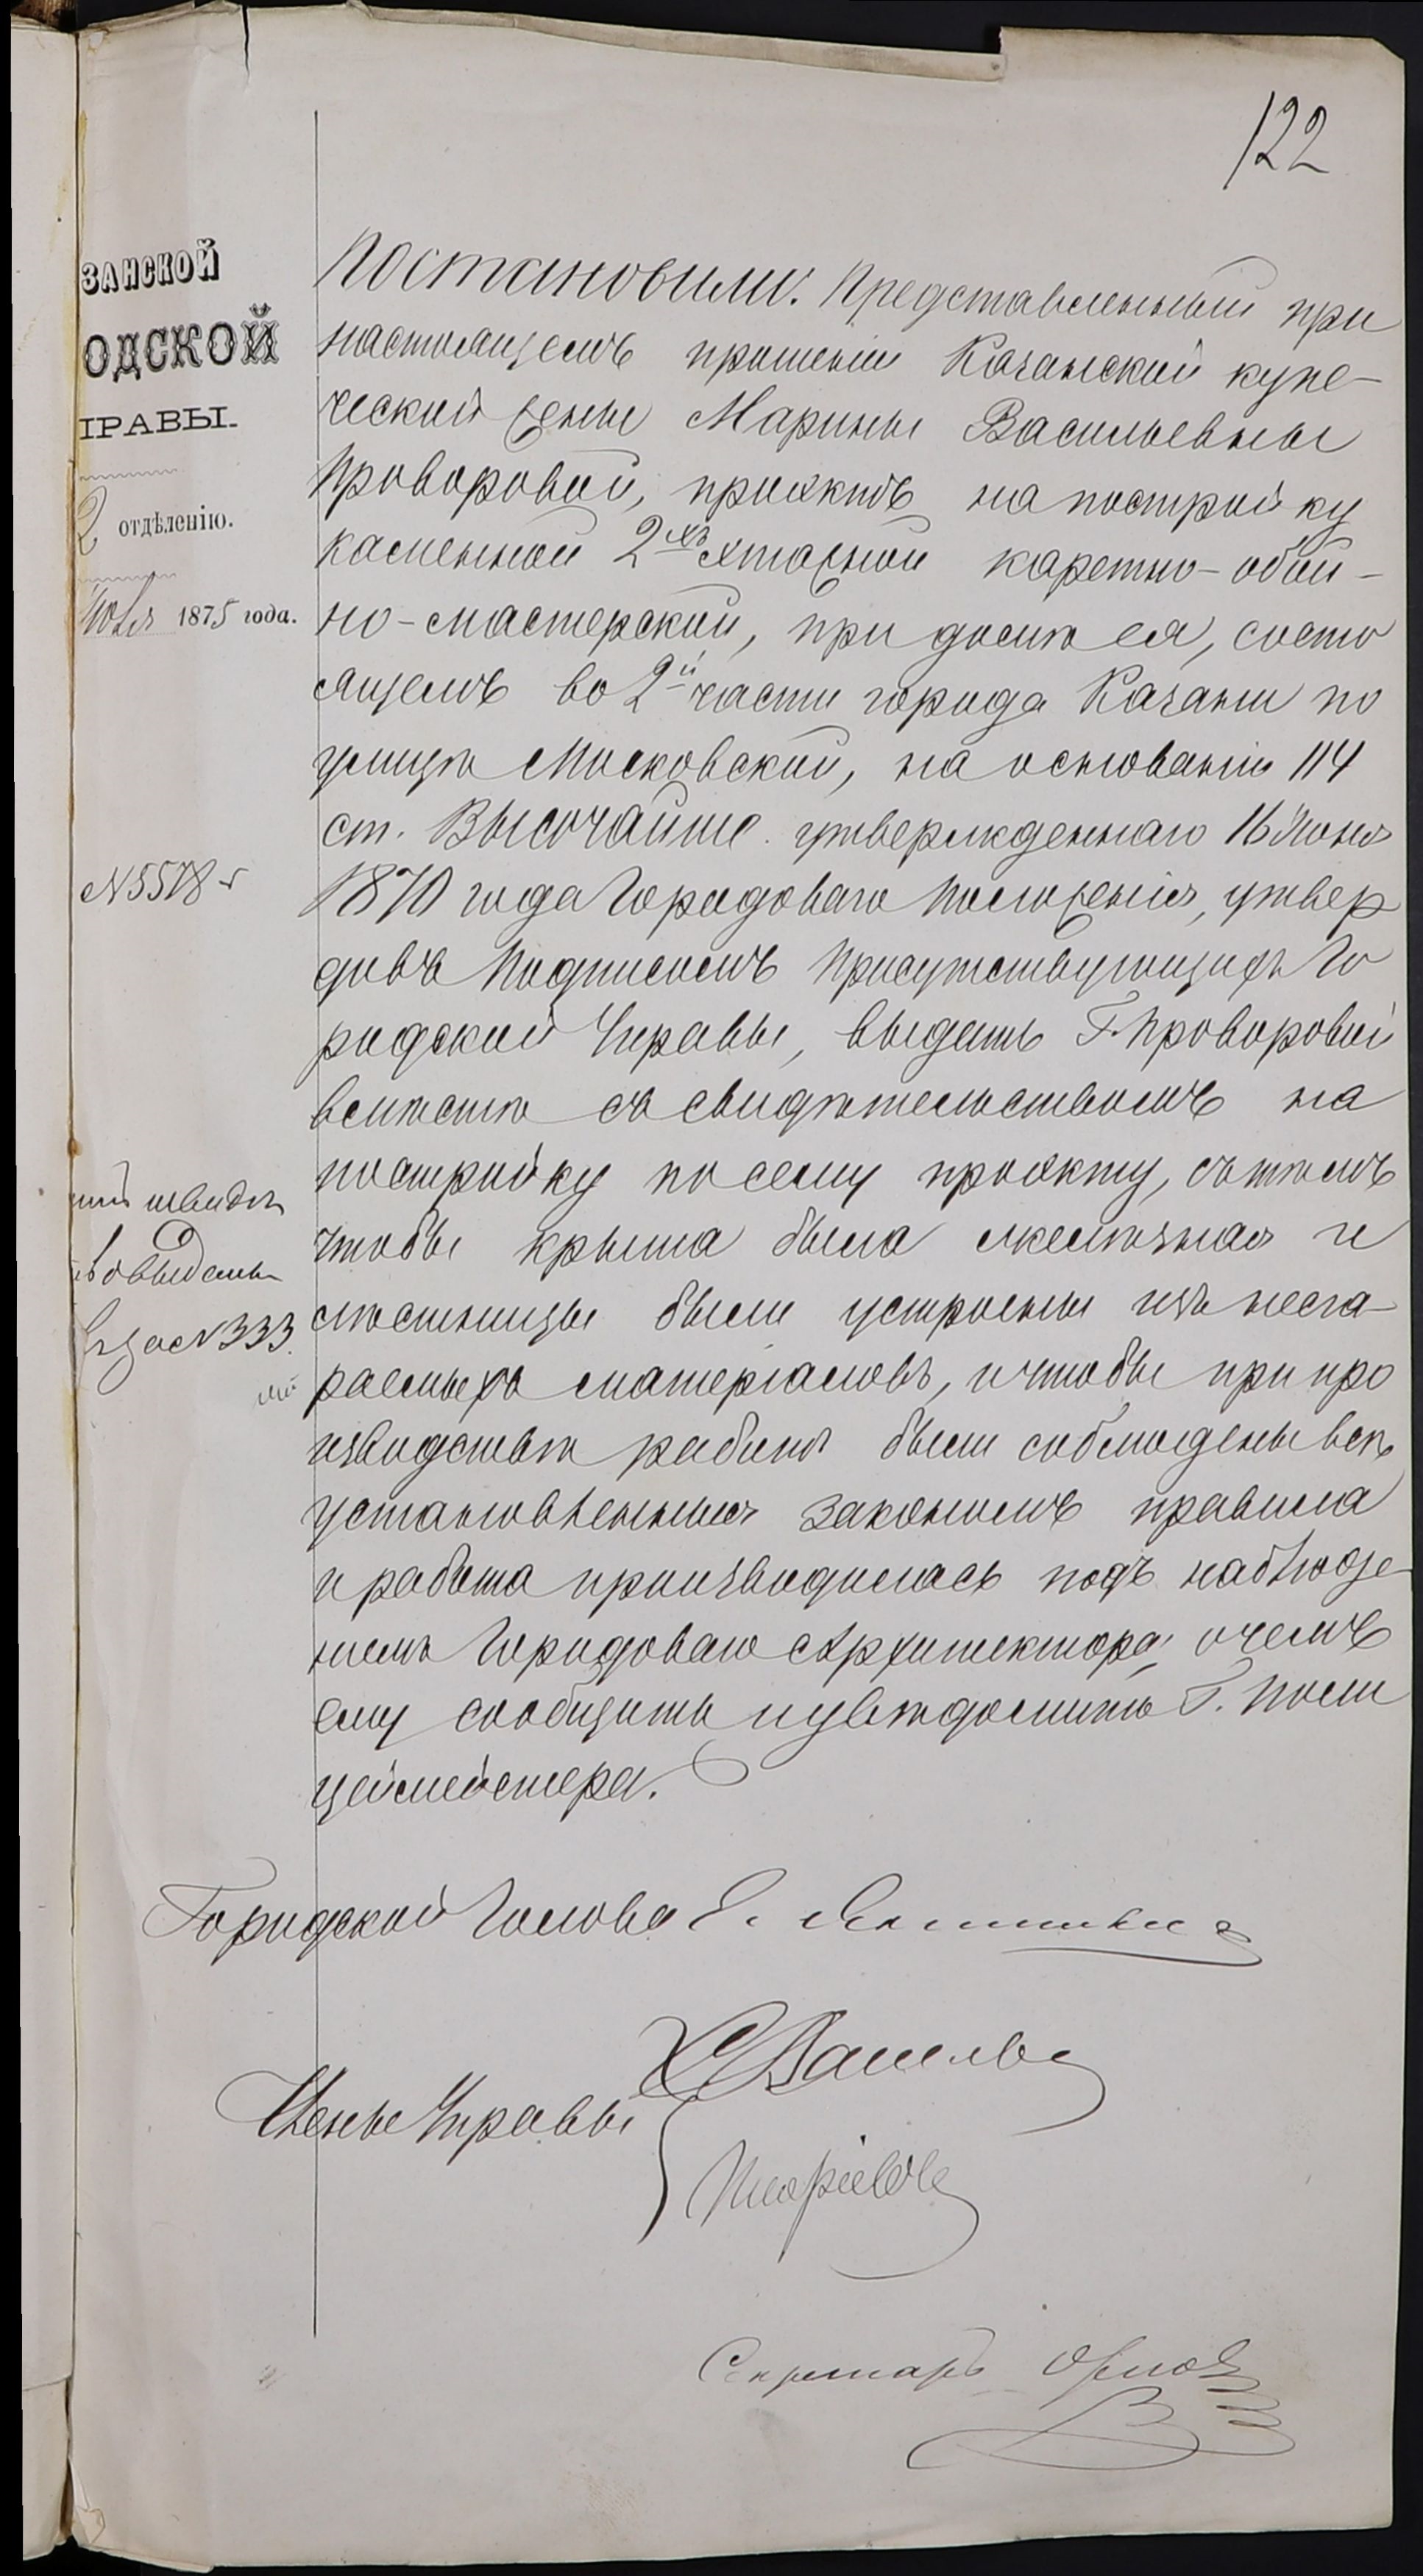 122
ЗАНСКОЙ
ОДСКОЙ
ПРАВЫ.
2 отдѣленію.
Іюля 1875 года.
№ 5578
№ 333
Постановили: Представленный при
настоящемъ прошеніи Казанской купе-
ческой жены Марины Васильевны
Проворовой, проэктъ на постройку
каменной 2хъ этажной каретно-обой-
но-мастерской, при домѣ ея, состо
ящемъ во 2й части города Казани по
улицѣ Московской, на основаніи 114
ст. Высочайше утвержденнаго 16 Іюня
1870 года Городоваго Положенія, утвер
дивъ подписомъ Присутствующихъ Го
родской Управы, выдать Г. Проворовой
вмѣстѣ съ свидѣтельствомъ на
постройку по сему проэкту, съ тѣмъ
чтобы крыша была желѣзная и
лѣстницы были устроены изъ несга-
раемыхъ матеріаловъ, и чтобы при про
изводствѣ работъ были соблюдены всѣ
установленныя закономъ правила
и работа производилась подъ наблюде
ніемъ Городоваго Архитектора, о чемъ
ему сообщить и увѣдомить Г. Поли
цеймейстера.
Городской Голова Е.
Члены Управы
Секретарь Орлов